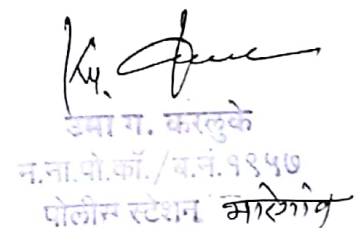 उमा ग. करलुके
म.ना.पो.कॉ./ब.नं.१९५७
पोलीस स्टेशन, मारेगांव